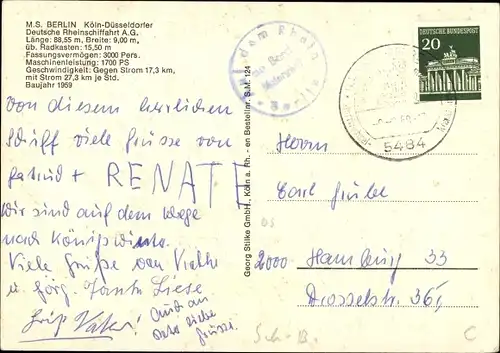 M.S. BERLIN Köln-Düsseldorfer
Deutsche Rheinschiffahrt A.G.
Länge: 88,55 m, Breite: 9,00 m,
üb. Radkasten: 15,50 m
Fassungsvermögen: 3000 Pers.
Maschinenleistung: 1700 PS
Geschwindigkeit: Gegen Strom 17,3 km,
mit Strom 27,3 km je Std.
Baujahr 1959
von diesem herrlichen
Schiff viele Grüsse von
Gertrud + RENATE
Wir sind auf dem Wege
nach Königswinter
Viele Grüße von
u. Jörg. Tante Liese
Vater!
Auch an
liebe
Grüsse.
Georg Stilke GmbH., Köln a. Rh. - en Bestellnr. S.M. 124
auf dem Rhein
Berlin
DEUTSCHE BUNDESPOST
20
5484
Herrn
Carl
2000 Hamburg 33
Drosselstr. 36,
C